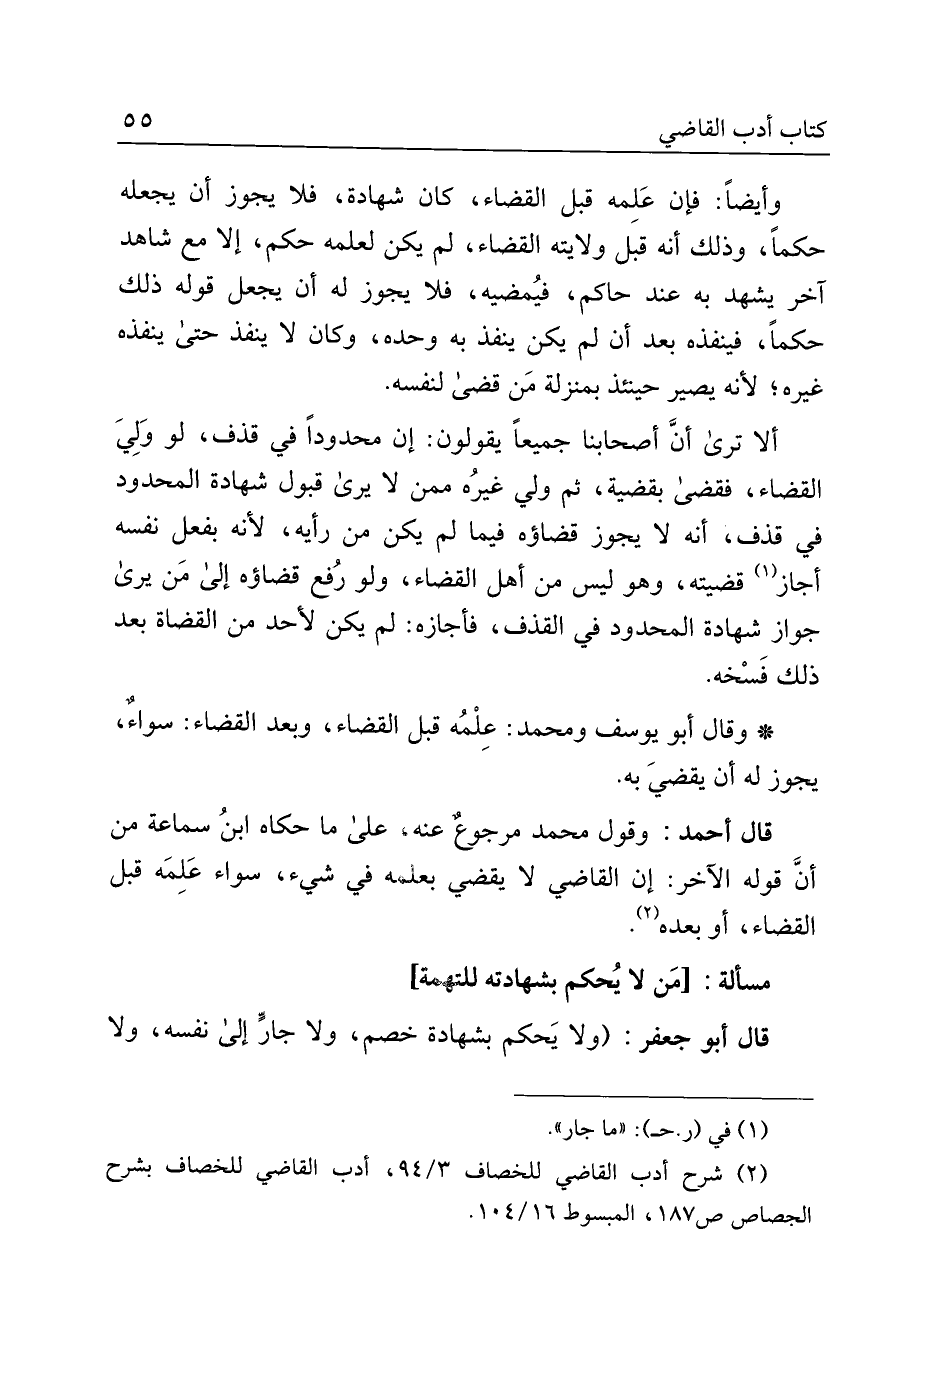 كتاب أدب القاضي ٥٥
وأيضاً: فإن عَلِمه قبل القضاء، كان شهادة، فلا يجوز أن يجعله
حكماً، وذلك أنه قبل ولايته القضاء، لم يكن لعلمه حكم، إلا مع شاهد
آخر يشهد به عند حاكم، فيُمضيه، فلا يجوز له أن يجعل قوله ذلك
حكماً، فينفذه بعد أن لم يكن ينفذ به وحده، وكان لا ينفذ حتىٰ ينفذه
غيره؛ لأنه يصير حينئذ بمنزلة مَن قضىٰ لنفسه.
ألا ترىٰ أنَّ أصحابنا جميعاً يقولون: إن محدوداً في قذف، لو وَلِيَ
القضاء، فقضىٰ بقضية، ثم ولي غيرُه ممن لا يرىٰ قبول شهادة المحدود
في قذف، أنه لا يجوز قضاؤه فيما لم يكن من رأيه، لأنه بفعل نفسه
أجاز(١) قضيته، وهو ليس من أهل القضاء، ولو رُفع قضاؤه إلىٰ مَن يرىٰ
جواز شهادة المحدود في القذف، فأجازه: لم يكن لأحد من القضاة بعد
ذلك فَسْخه.
* وقال أبو يوسف ومحمد: عِلْمُه قبل القضاء، وبعد القضاء: سواءٌ،
يجوز له أن يقضيَ به.
قال أحمد : وقول محمد مرجوعٌ عنه، علىٰ ما حكاه ابنُ سماعة من
أنَّ قوله الآخر: إن القاضي لا يقضي بعلمه في شيء، سواء عَلِمَه قبل
القضاء، أو بعده(٢).
مسألة : [مَن لا يُحكم بشهادته للتهمة]
قال أبو جعفر : (ولا يَحكم بشهادة خصم، ولا جارٍّ إلىٰ نفسه، ولا
(١) في (ر.حـ): «ما جار».
(٢) شرح أدب القاضي للخصاف ٩٤/٣، أدب القاضي للخصاف بشرح
الجصاص ص١٨٧، المبسوط ١٠٤/١٦.